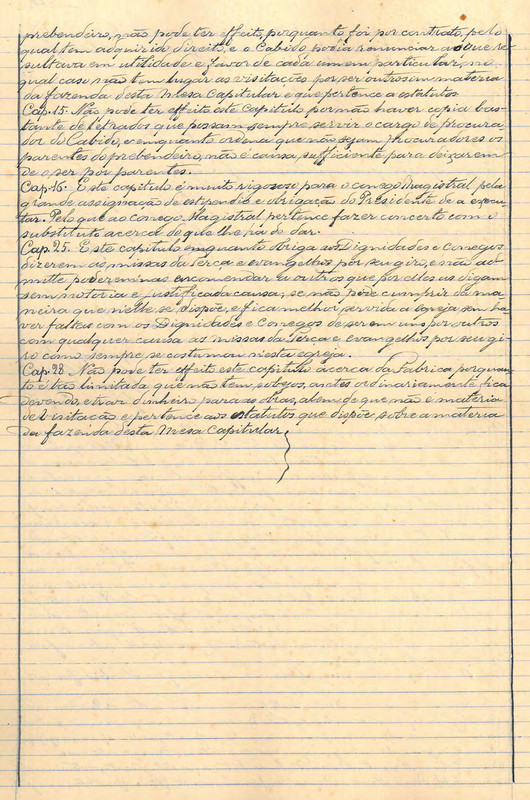 prebendeiro, não pode ter effeito, porquanto foi por contrato, pelo
qual tem adquirido direito, e o Cabido podia renunciar ao que re-
sultava em utilidade e favor de cada um em particular, no
qual caso não tem lugar as visitações por ser outrosim materia
da fazenda desta Mesa Capitular e que pertence a estatutos.
Cap. 15. Não pode ter effeito este Capitulo por não haver copia bas-
tante de letrados que possam sempre servir o cargo de procura-
dor do Cabido, e emquanto ordena que não sejam procuradores os
parentes do prebendeiro, não é causa sufficiente para deixarem
de o ser por parentes.
Cap. 16. Este capitulo é muito rigoroso para o conego Magistral pela
grande assignação de estipendio e obrigação do Presidente de a execu-
tar. Pelo que ao conego Magistral pertence fazer concerto com o
substituto acerca do que lhe ha de dar.
Cap. 25. Este capitulo emquanto obriga as Dignidades e conegos
dizerem as missas da Terça e evangelhos por seu giro, e não ad-
mitte poderem as encomendar a outros que por elles as digam
sem notoria e justificada causa, se não pode cumprir da ma-
neira que nelle se dispõe, e fica melhor servida a egreja sem ha-
ver faltas com os Dignidades e Conegos dizerem uns por outros
com qualquer causa as missas da Terça e evangelhos por seu gi-
ro como sempre se costumou nesta egreja.
Cap. 28. Não pode ter effeito este capitulo acerca da Fabrica porquan-
to é tão limitada que não tem sobejos, antes ordinariamente fica
devendo, e tirar dinheiro para as obras, alem de que não é materia
de Visitação e pertence aos estatutos que dispõe sobre a materia
da fazenda desta Mesa Capitular.